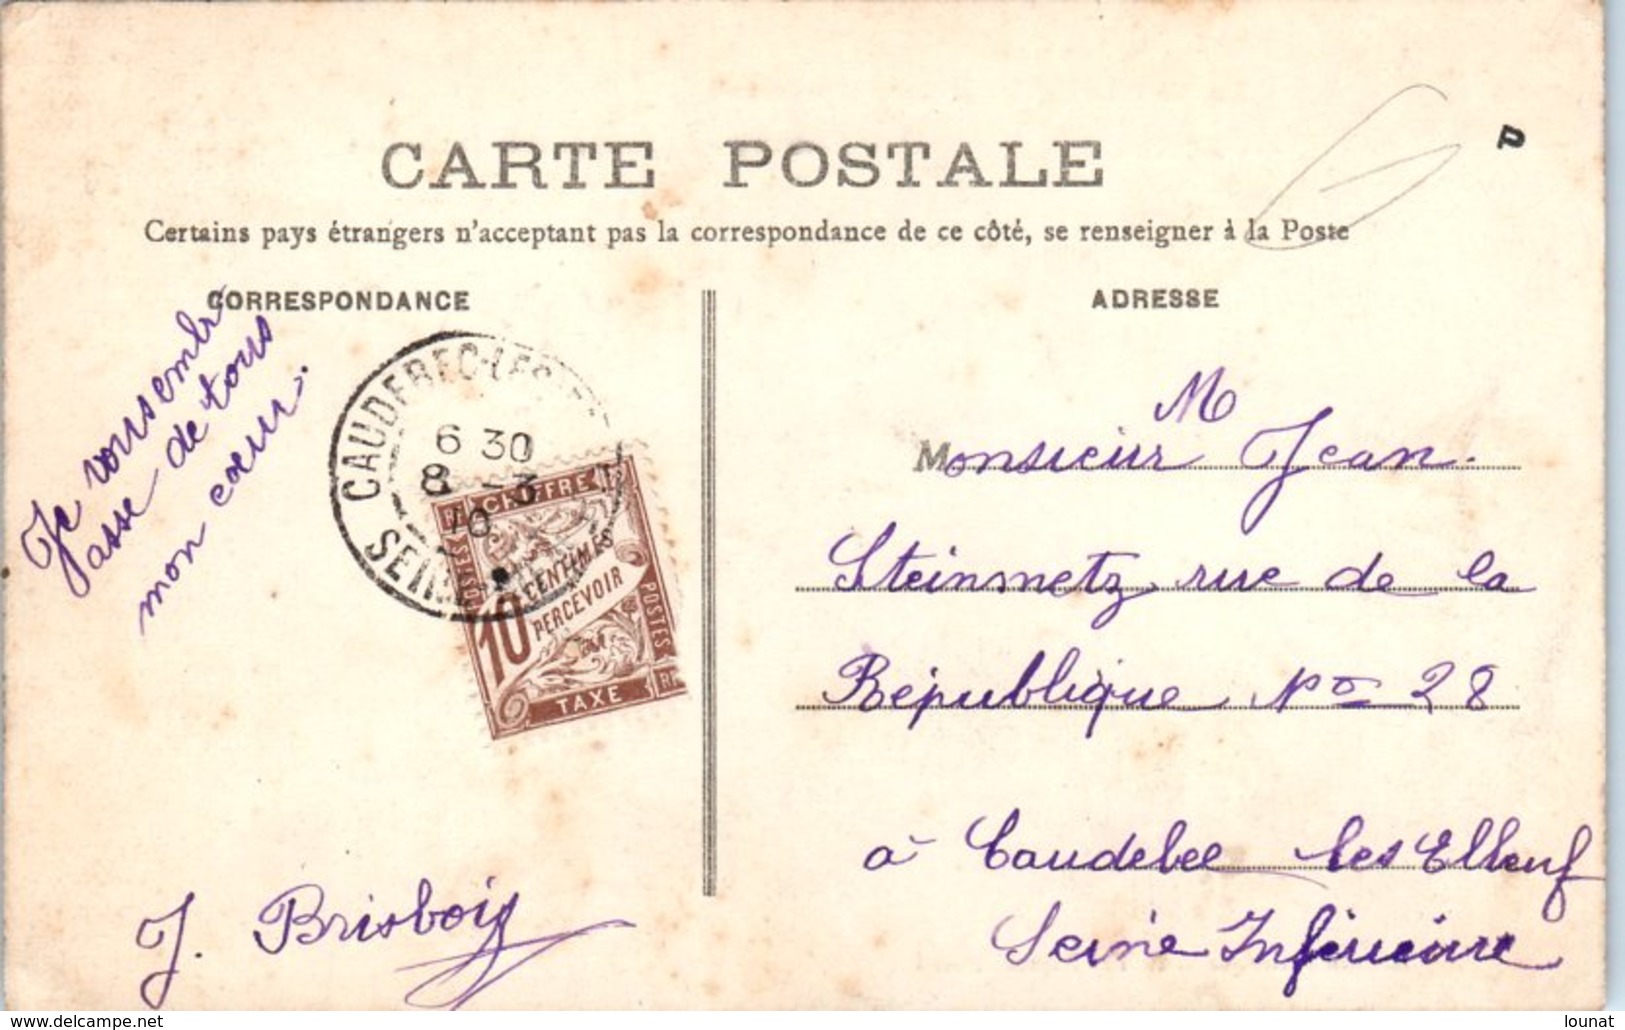 CARTE POSTALE
Certains pays étrangers n'acceptant pas la correspondance de ce côté, se renseigner à la Poste
CORRESPONDANCE
ADRESSE
Je vousembr
asse de tous
mon coeur.
J. Brisbois
CAUDEBEC-LES
6 30
8 -3
10
SEINE
CHIFFRE
10 CENTIMES
PERCEVOIR
POSTES
TAXE
RF
M
Monsieur Jean.
Steinmetz rue de la
République No 28
à Caudebec les Elbeuf
Seine Inférieure
www.delcampe.net
lounat